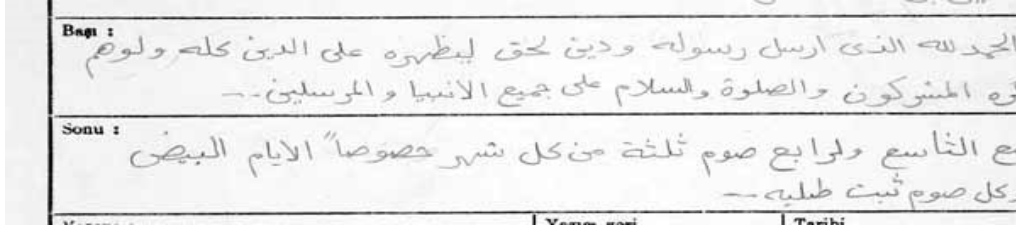 Başı :
الحمد لله الذى ارسل رسوله ودين لحق ليظهره على الدين كله ولوهم
كره المشركون والصلوة والسلام على جميع الانبيا والمرسلين..
Sonu :
مع التاسع ولرابع صوم ثلثة من كل شهر خصوصاً الايام البيض
وكل صوم ثبت طلبه ..
Yazım yeri
Tarihi